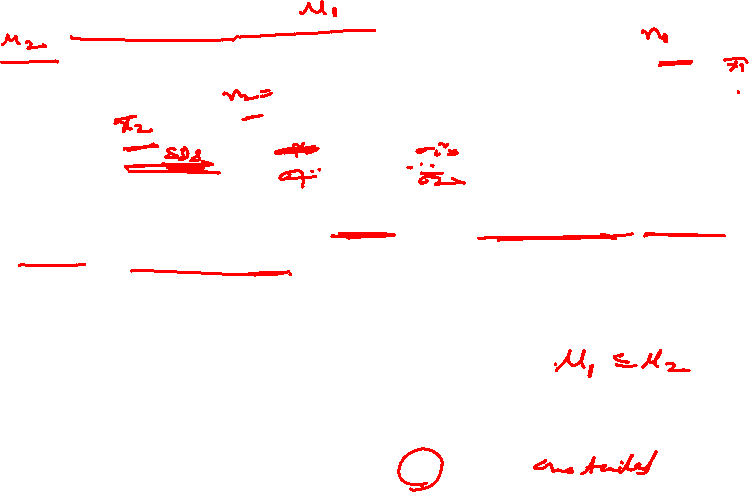 μ₁
μ₂ n₁
x̄₁
n₂ =
x̄₂
SDs
σ₁²
σ₂²
μ₁ ≤ μ₂
one tailed